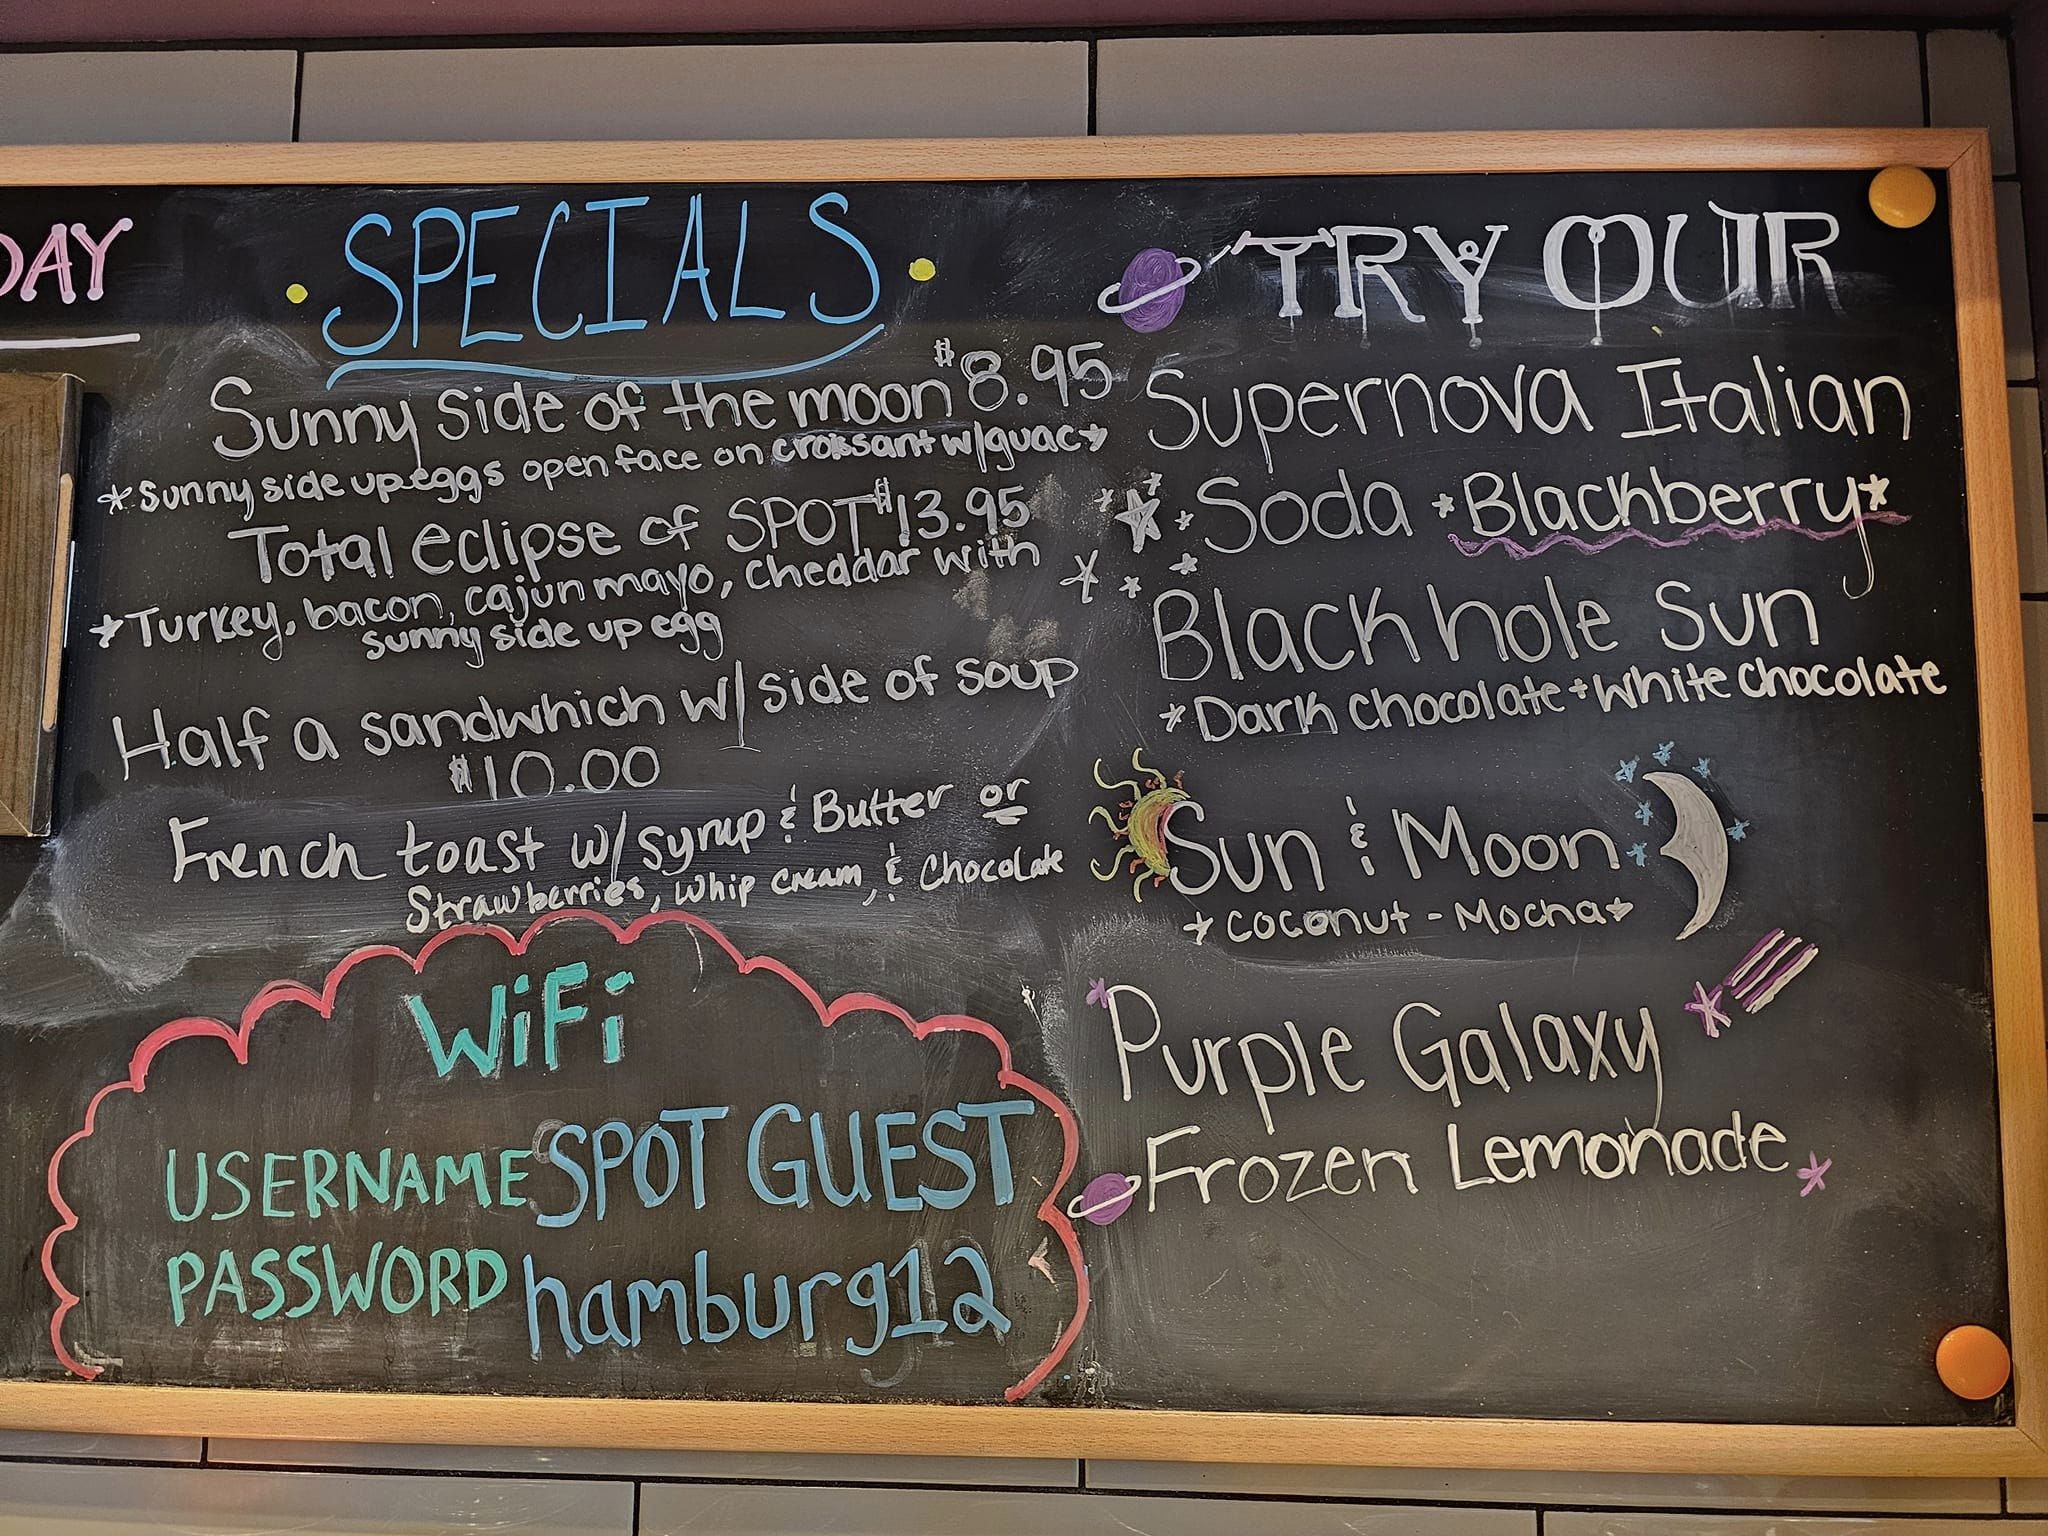 DAY
SPECIALS
Sunny side of the moon $8.95
*sunny side up eggs open face on croissant w/guac*
Total eclipse of SPOT $13.95
*Turkey, bacon, cajun mayo, cheddar with
sunny side up egg
Half a sandwhich w/ side of soup
$10.00
French toast w/syrup & Butter or
Strawberries, whip cream, & Chocolate
WiFi
USERNAME SPOT GUEST
PASSWORD hamburg12
TRY OUR
Supernova Italian
Soda *Blackberry*
Black hole Sun
*Dark chocolate + White chocolate
Sun & Moon
*coconut - Mocha*
Purple Galaxy
Frozen Lemonade